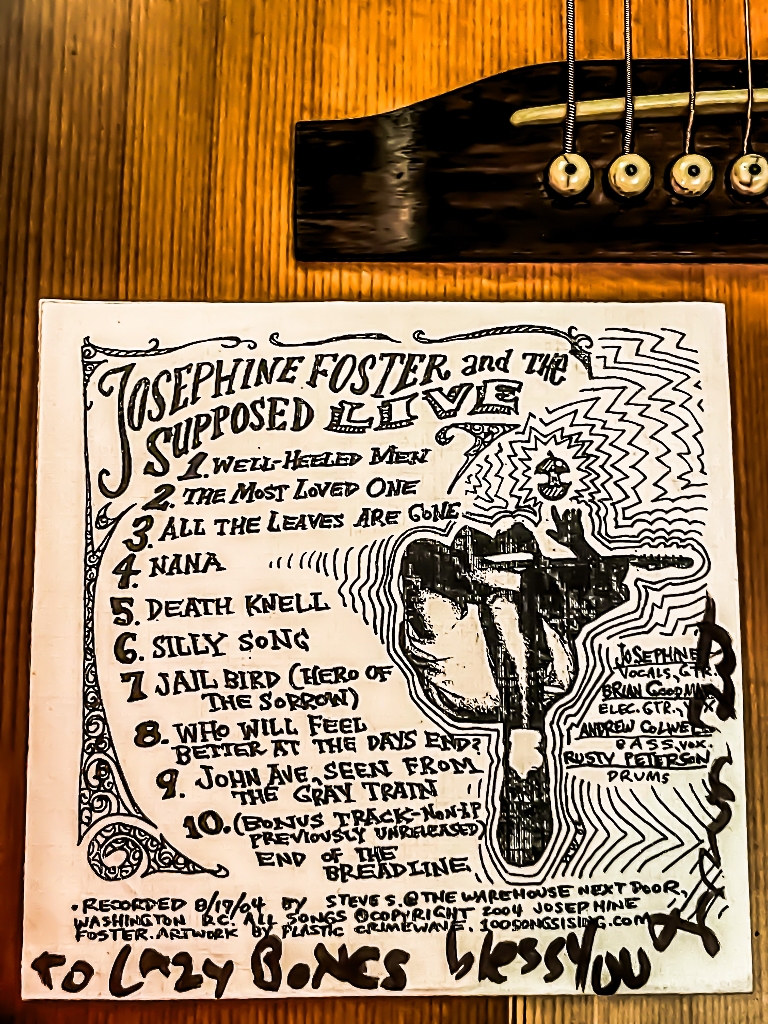 JOSEPHINE FOSTER and THE
SUPPOSED LIVE
1. WELL-HEELED MEN
2. THE MOST LOVED ONE
3. ALL THE LEAVES ARE GONE
4. NANA
5. DEATH KNELL
6. SILLY SONG
7 JAIL BIRD (HERO OF
THE SORROW)
8. WHO WILL FEEL
BETTER AT THE DAYS END?
9. JOHN AVE. SEEN FROM
THE GRAY TRAIN
10. (BONUS TRACK-NON-LP
PREVIOUSLY UNRELEASED)
END OF THE
BREADLINE
JOSEPHINE
VOCALS, GTR.
BRIAN GOODMAN
ELEC. GTR., VOX
ANDREW COLWELL
BASS, VOX.
RUSTY PETERSON
DRUMS
• RECORDED 8/17/04 BY STEVE S. @ THE WAREHOUSE NEXT DOOR,
WASHINGTON D.C. ALL SONGS ©COPYRIGHT 2004 JOSEPHINE
FOSTER. ARTWORK BY PLASTIC CRIMEWAVE. 100SONGSISING.COM
TO LAZY BONES blESS YOU